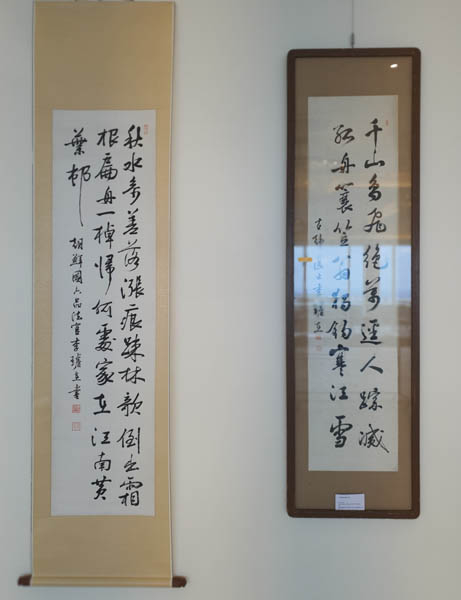 秋水參差落漲痕疎林欹倒出霜
根扁舟一棹歸何處家在江南黃
葉邨
朝鮮國六品法官李璿在書
千山鳥飛絕萬逕人蹤滅
孤舟簑笠翁獨釣寒江雪
居士李璿在